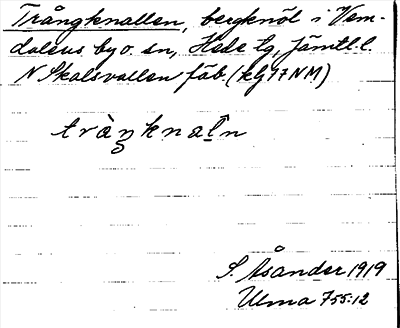 Trångknallen, bergknöl i Vem-
dalens by o. sn, Hede tg, Jämtl. l.
N Skalsvallen fäb. (kg 17 NM)
S. Åsander 1919
Ulma 755:12